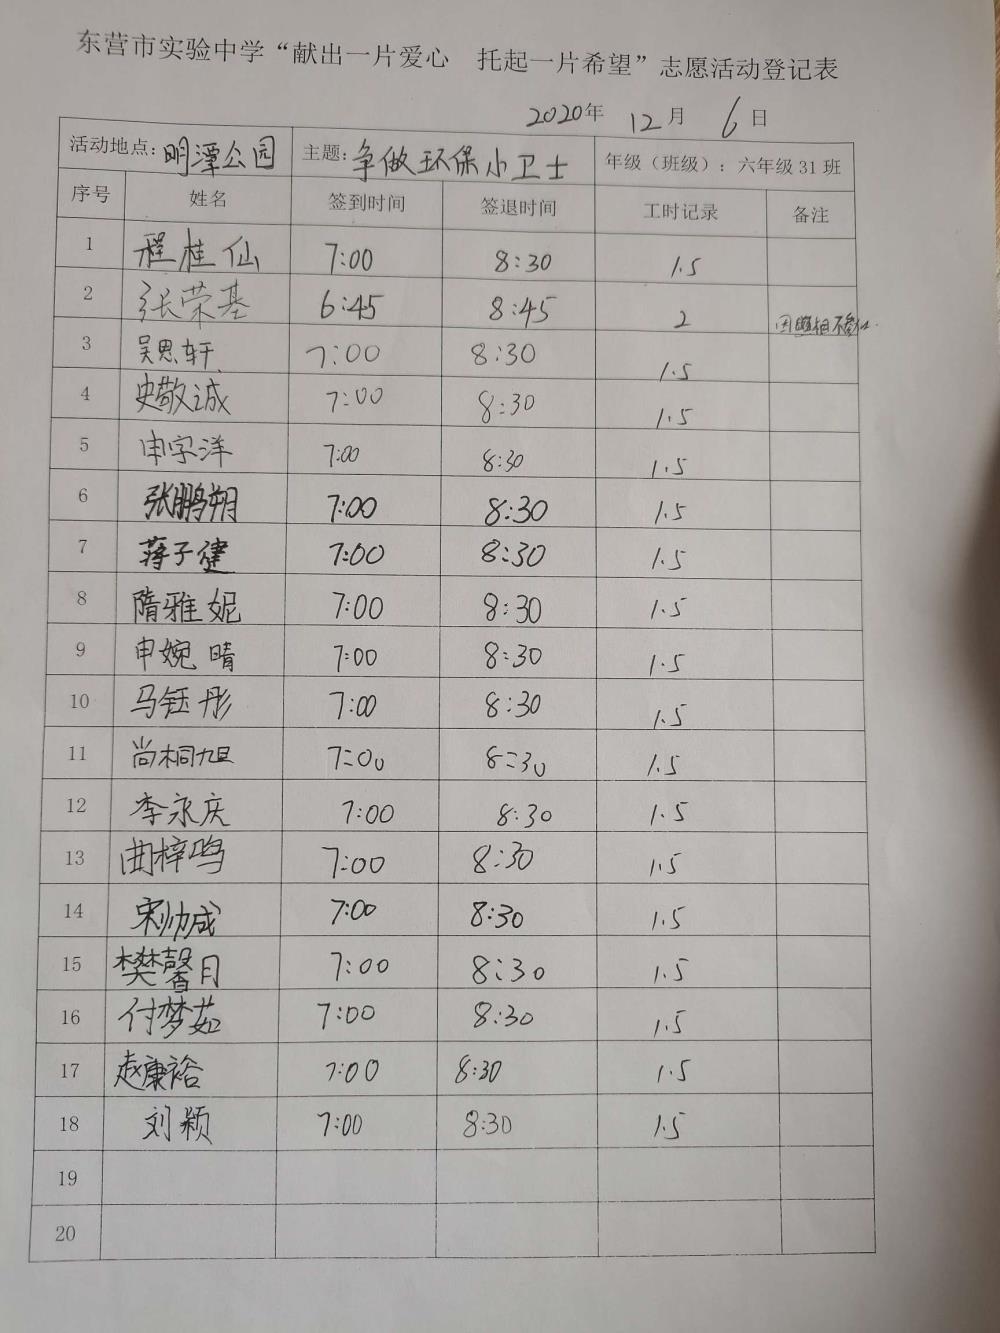 东营市实验中学“献出一片爱心 托起一片希望”志愿活动登记表
2020年 12月 6日
活动地点: 明潭公园 主题: 争做环保小卫士 年级（班级）: 六年级31班
序号 姓名 签到时间 签退时间 工时记录 备注
1 程桂仙 7:00 8:30 1.5
2 张荣基 6:45 8:45 2 因照相不
3 吴思轩 7:00 8:30 1.5
4 史敬诚 7:00 8:30 1.5
5 申字洋 7:00 8:30 1.5
6 张鹏朔 7:00 8:30 1.5
7 蒋子健 7:00 8:30 1.5
8 隋雅妮 7:00 8:30 1.5
9 申婉晴 7:00 8:30 1.5
10 马钰彤 7:00 8:30 1.5
11 尚桐旭 7:00 8:30 1.5
12 李永庆 7:00 8:30 1.5
13 曲梓鸣 7:00 8:30 1.5
14 宋帅成 7:00 8:30 1.5
15 樊馨月 7:00 8:30 1.5
16 付梦茹 7:00 8:30 1.5
17 赵康裕 7:00 8:30 1.5
18 刘颖 7:00 8:30 1.5
19
20